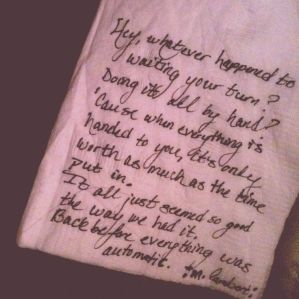 Hey, whatever happened to
waiting your turn?
Doing it all by hand?
'Cause when everything is
handed to you, it's only
worth as much as the time
put in.
It all just seemed so good
the way we had it,
Back before everything was
automatic.
:M. Lambert: